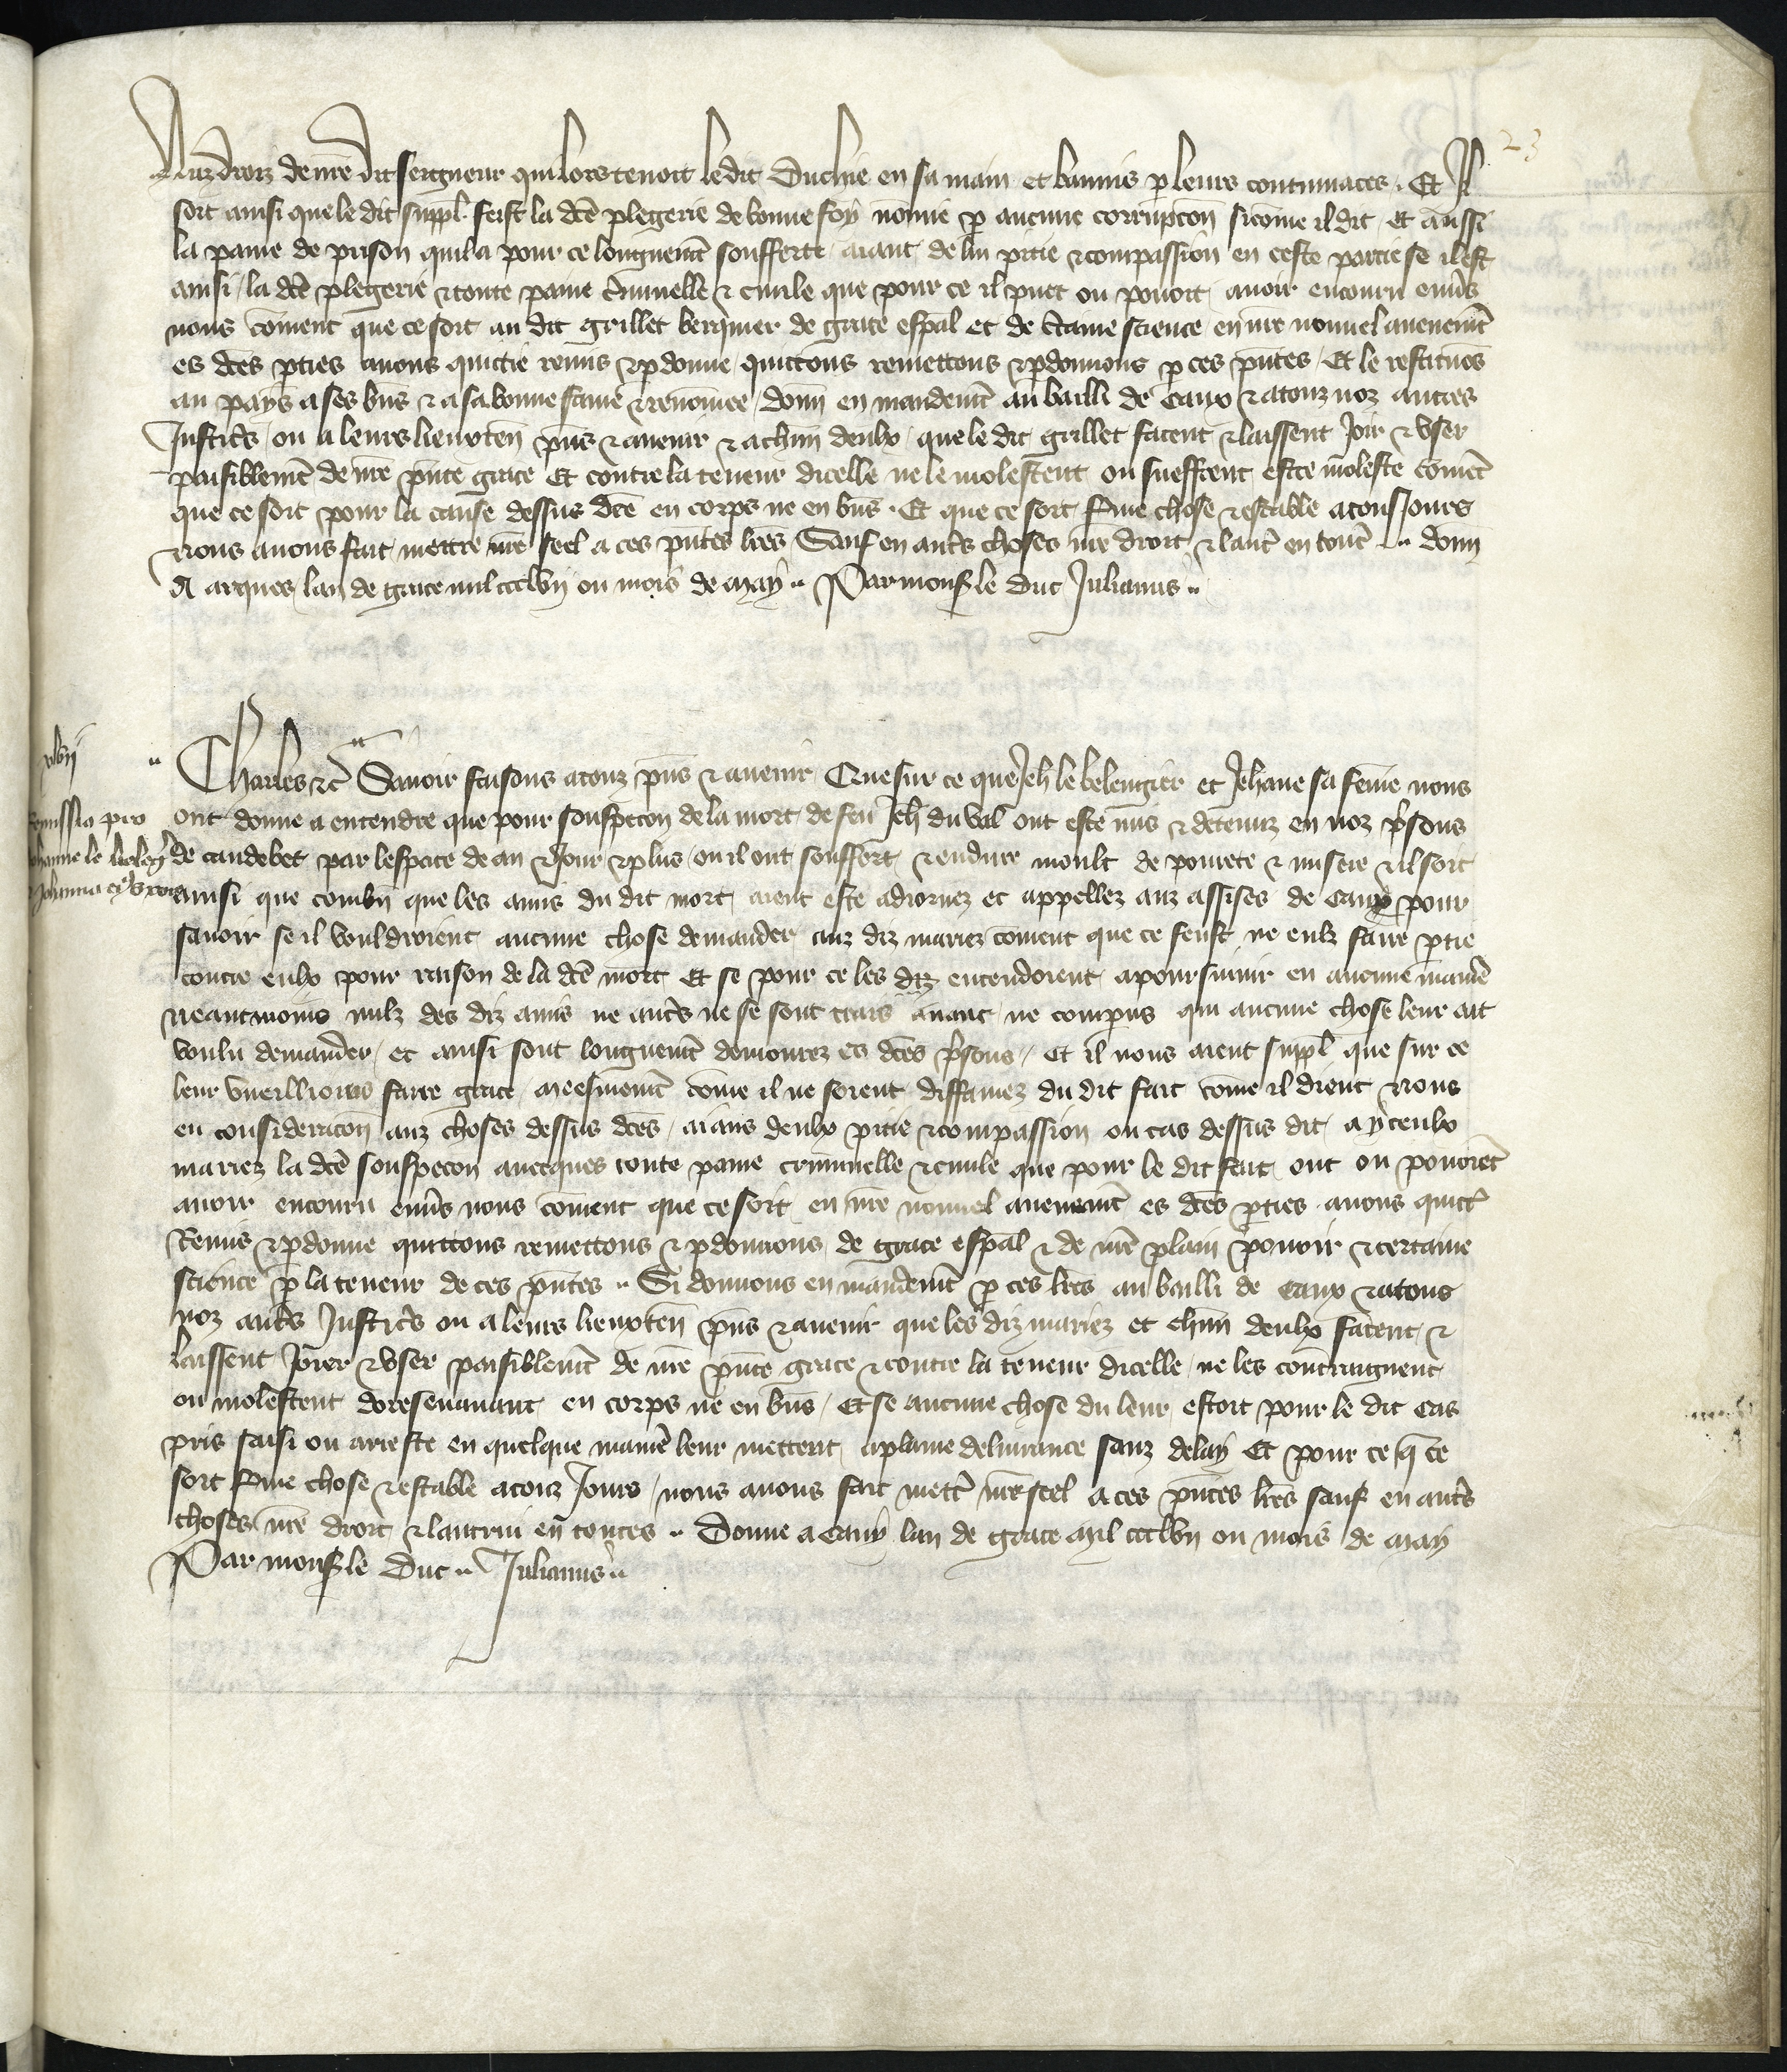 23
Auz droiz de nr̄e dit seigneur qui lors tenoit ledit Duchie en sa main et bannis p leurs contumaces. Et Il
soit ainsi que le dit suppl. feist la dcē plegerie de bonne foy nomie p aucune corrupcōn sicōme il dit, et aussi
la paine de prison quil a pour ce longuemt̄ soufferte, aiant de lui pitie ⁊ compassion en ceste partie se il est
ainsi, la dcē plegerie ⁊ toute paine c̄minelle ⁊ ciuile que pour ce il puet ou pouoit auoir encouru enuˢs
nous cōment que ce soit au dit Grillet berquier de grace esp̄al et de c̄taine science en nr̄e nouuel auenemt̄
es dcēs pties auons quictie remis ⁊ pdonne, quictons remettons ⁊ pdonnons p ces pn̄tes. Et le restituōs
au pays a ses bn̄s ⁊ a sa bonne fame ⁊ renōmee, donn̄ en mandemt̄ au bailli de Caux ⁊ a touz noz autres
Justicˢs, ou a leurs lieuxten̄ pn̄s ⁊ auenir ⁊ a chūn deulx, que le dit Grillet facent ⁊ laissent Joir ⁊ vser
paisiblemt̄ de nr̄e pn̄te grace Et contre la teneur dicelle ne le molestent ou sueffrent estre moleste cōmēt
que ce soit pour la cause dessus dcē en corps ne en bn̄s. Et que ce soit fme chose ⁊ estable a tousJours
Nous auons fait mettre nr̄e seel a ces pn̄tes lr̄es Sauf en autˢs choses nr̄e droit ⁊ lautˢ en toutˢ .. donn̄
A arques lan de grace mil ccclvij ou mois de may .. Par monsˢ le Duc Julianus ..
xlvij
Charles ⁊c̄ Sauoir faisons a touz pn̄s ⁊ auenir Que sur ce que Jeh̄ le belengier et Jehane sa fēme nous
Remissio pro
ont donne a entendre que pour souspecōn de la mort de feu Jeh̄ du val ont este mis ⁊ detenuz en noz pˢsons
Johanne le beleg̾
de caudebec par lespace de an ⁊ Jour ⁊ plus, ou il ont souffert ⁊ endure moult de pourete ⁊ misere ⁊ Il soit
⁊ Johanna eiˢ uxore
ainsi que combn̄ que les amis du dit mort aient este adiornez et appellez auz assises de Caux pour
sauoir se il vouldroient aucune chose demander auz diz mariez cōment que ce feust ne eulz faire ptie
contre eulx pour raison de la dcē mort Et se pour ce les diz entendoient a poursuiuir en aucune maniē
Neantmoins nulz des diz amis ne autˢs ne se sont trais auant ne comparus qui aucune chose leur ait
voulu demander, et ainsi sont longuemt̄ demourez es dcēs pˢsons, Et il nous aient suppl̄ que sur ce
leur vueillions faire grace, meesmemt̄ cōme il ne soient diffamez du dit fait cōme il dient Nous
en consideracōn auz choses dessus dcēs, aians deulx pitie ⁊ compassion ou cas dessus dit, a yceulx
mariez la dcē souspecon auecques toute paine criminelle ⁊ ciuile que pour le dit fait ont ou pouoiēt
auoir encouru enuˢs nous cōment que ce soit en nr̄e nouuel auenemt̄ es dcēs pties auons quictˢ
Remis ⁊ pdonne quictons remettons ⁊ pdonnons de grace esp̄al ⁊ de nr̄e plain pouoir ⁊ certaine
science p la teneur de ces pn̄tes .. Si donnons en mandemt̄ p ces lr̄es au bailli de Caux ⁊ a touz
noz autˢs Justicˢs ou a leurs lieuxten̄ pn̄s ⁊ auenir que les diz mariez et chūn deulx facent ⁊
laissent Joier ⁊ vser paisiblemt̄ de nr̄e pn̄te grace ⁊ contre la teneur dicelle, ne les contraignent
ou molestent doresenauant en corps ne en bn̄s, Et se aucune chose du leur estoit pour le dit cas
pris saisi ou arreste en quelque maniē leur mettent a plaine deliurance sanz delay Et pour ce q̄ ce
soit fme chose ⁊ estable a touz Jours, nous auons fait mettˢ nr̄e seel a ces pn̄tes lr̄es sauf en autˢs
choses nr̄e droit ⁊ lautrui en toutes .. Donne a Cany lan de grace Mil ccclvij ou mois de may
Par monsˢ le Duc .. Julianus ..